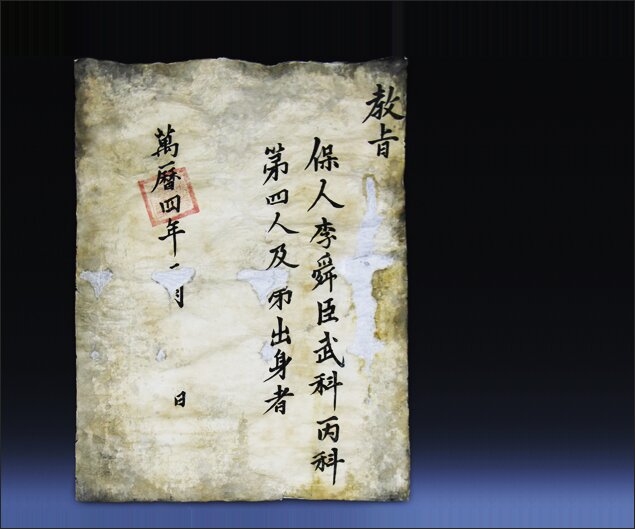 敎旨
保人李舜臣武科丙科
第四人及第出身者
萬曆四年 月 日